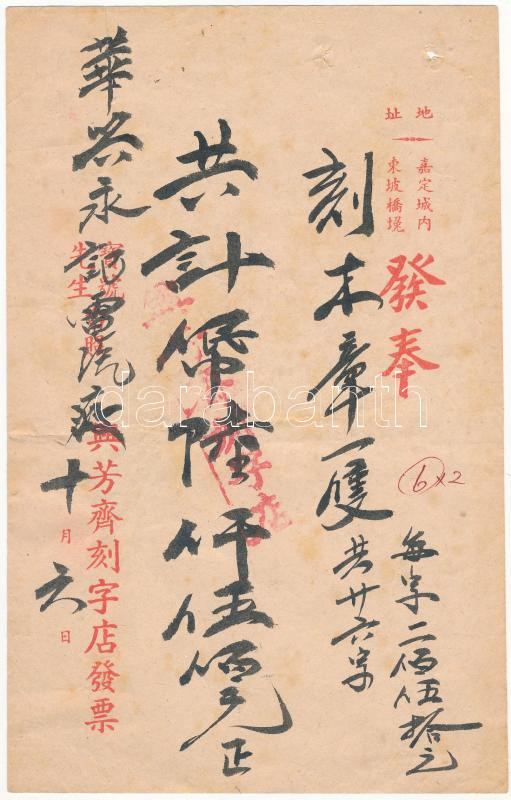 地址
嘉定城内
東坡橋境
發奉
刻木章一隻 共廿六字
每字二佰伍拾元
6x2
共計幣陸仟伍佰元正
華興永記電汽廠
寶號
先生
興芳齊刻字店發票
十月六日
darabanth